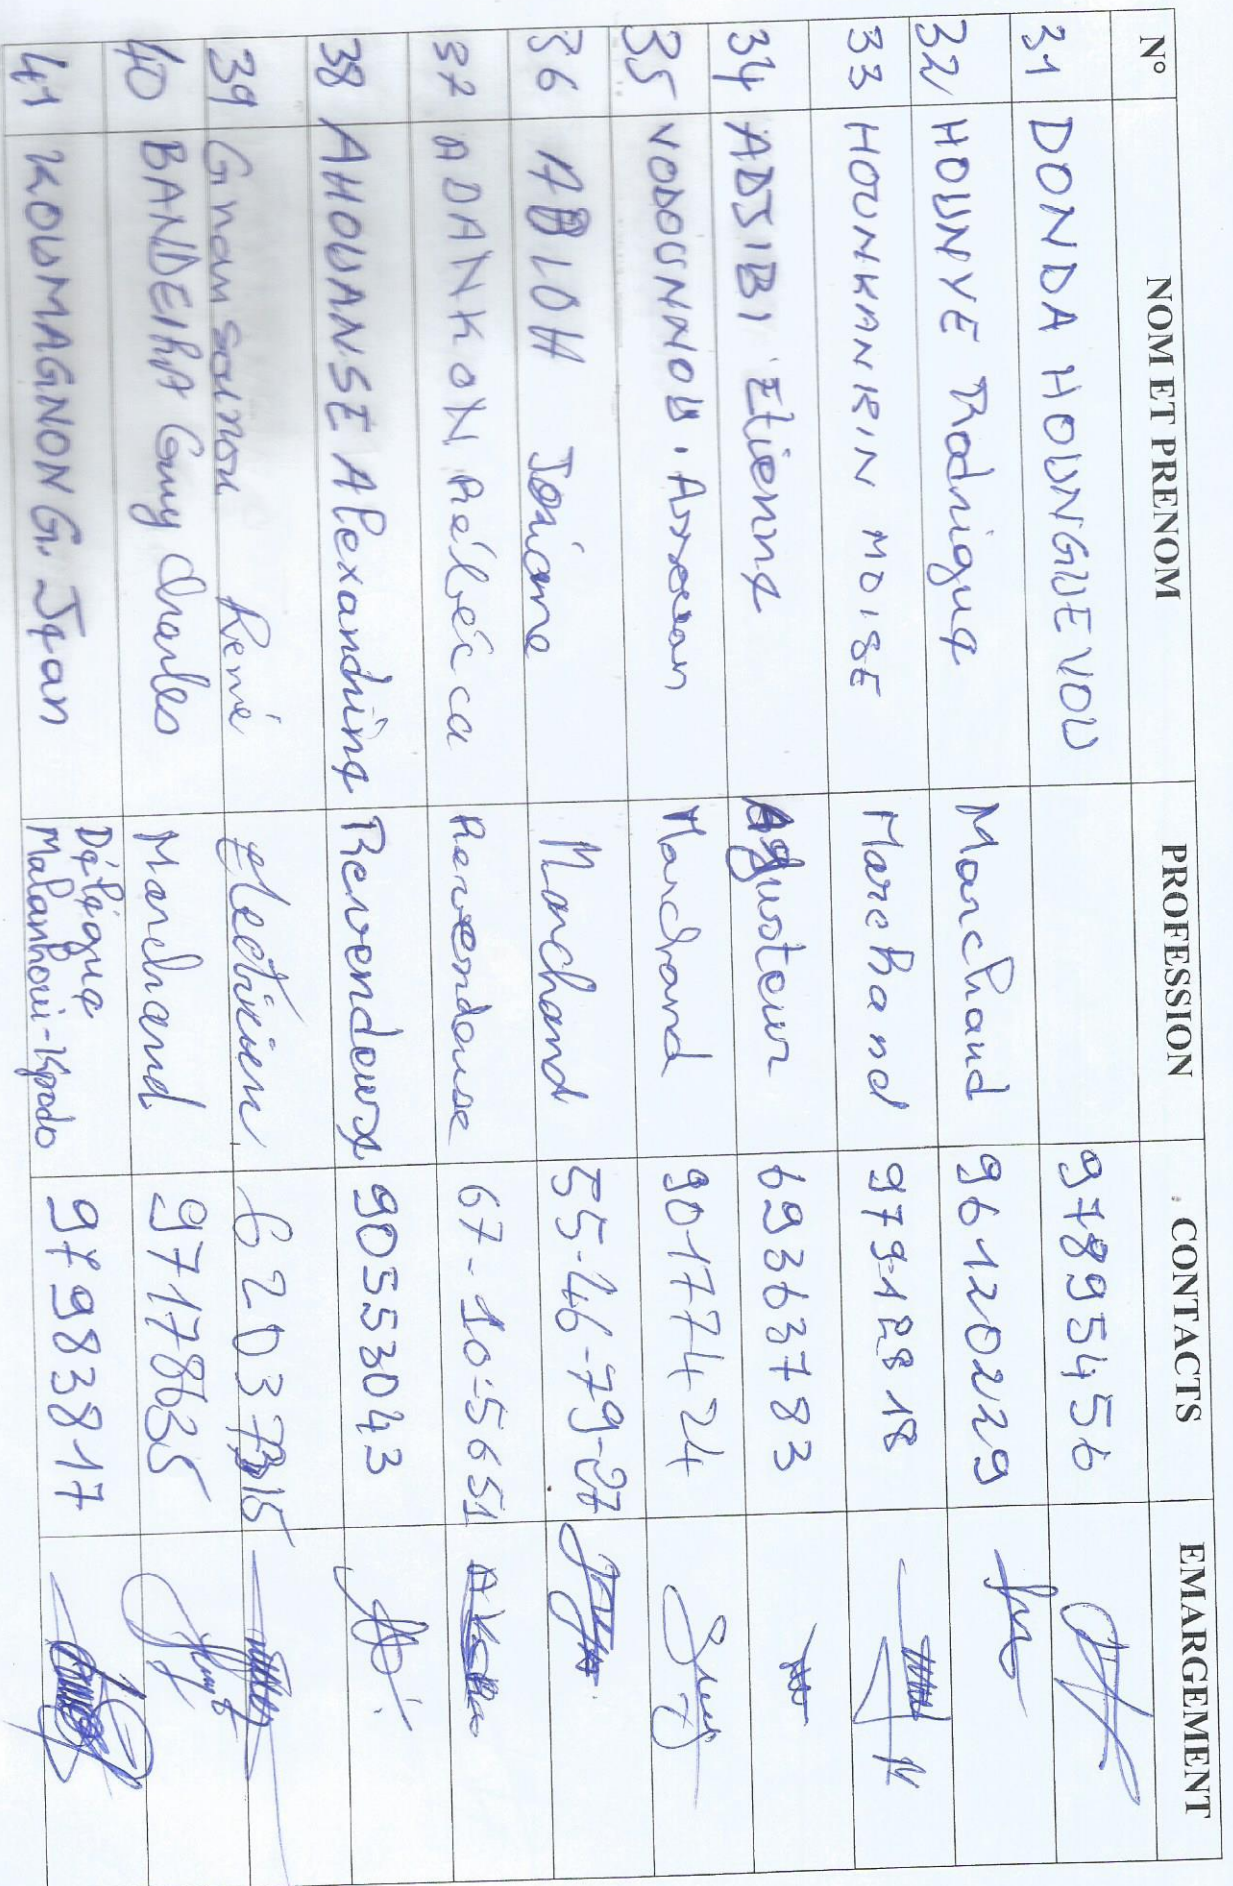 N° NOM ET PRENOM PROFESSION CONTACTS EMARGEMENT
31 DONDA HOUNGUEVOU 97895456
32 HOUNYE Rodrigue Marchand 96120229
33 HOUNKANRIN MOISE Marchand 97912818
34 ADJIBI Etienne Ajusteur 69363783
35 VODOUNNOU. Marchand 90177424
36 ABLOH Josiane Marchand 55-46-79-27
37 ADANKON Rébécca Revendeuse 67-10-5651
38 AHOUANSE Alexandrine Revendeuse 90553043
39 Gnansounou René Electricien 62037315
40 BANDEIRA Guy Charles Marchand 97178635
41 KOUMAGNON G. Jean Délégué Malanhoui-Kpodo 97983817